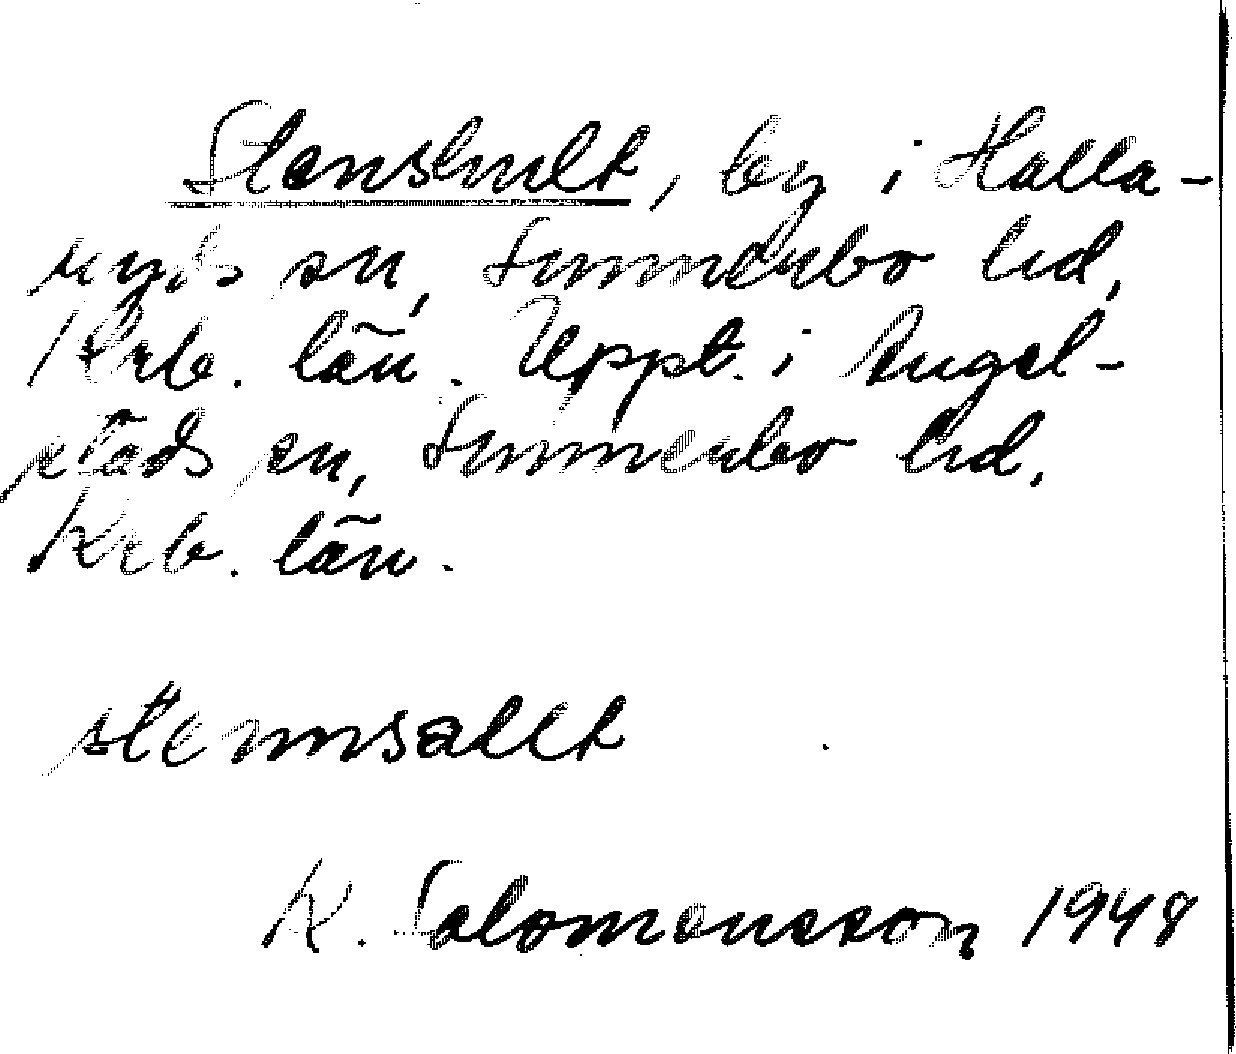 Stenshult, by i Halla-
ryds sn, Sunnerbo hd,
Krb. län. Uppt. i Angel-
stads sn, Sunnerbo hd,
Krb. län.
K. Salomonsson 1948